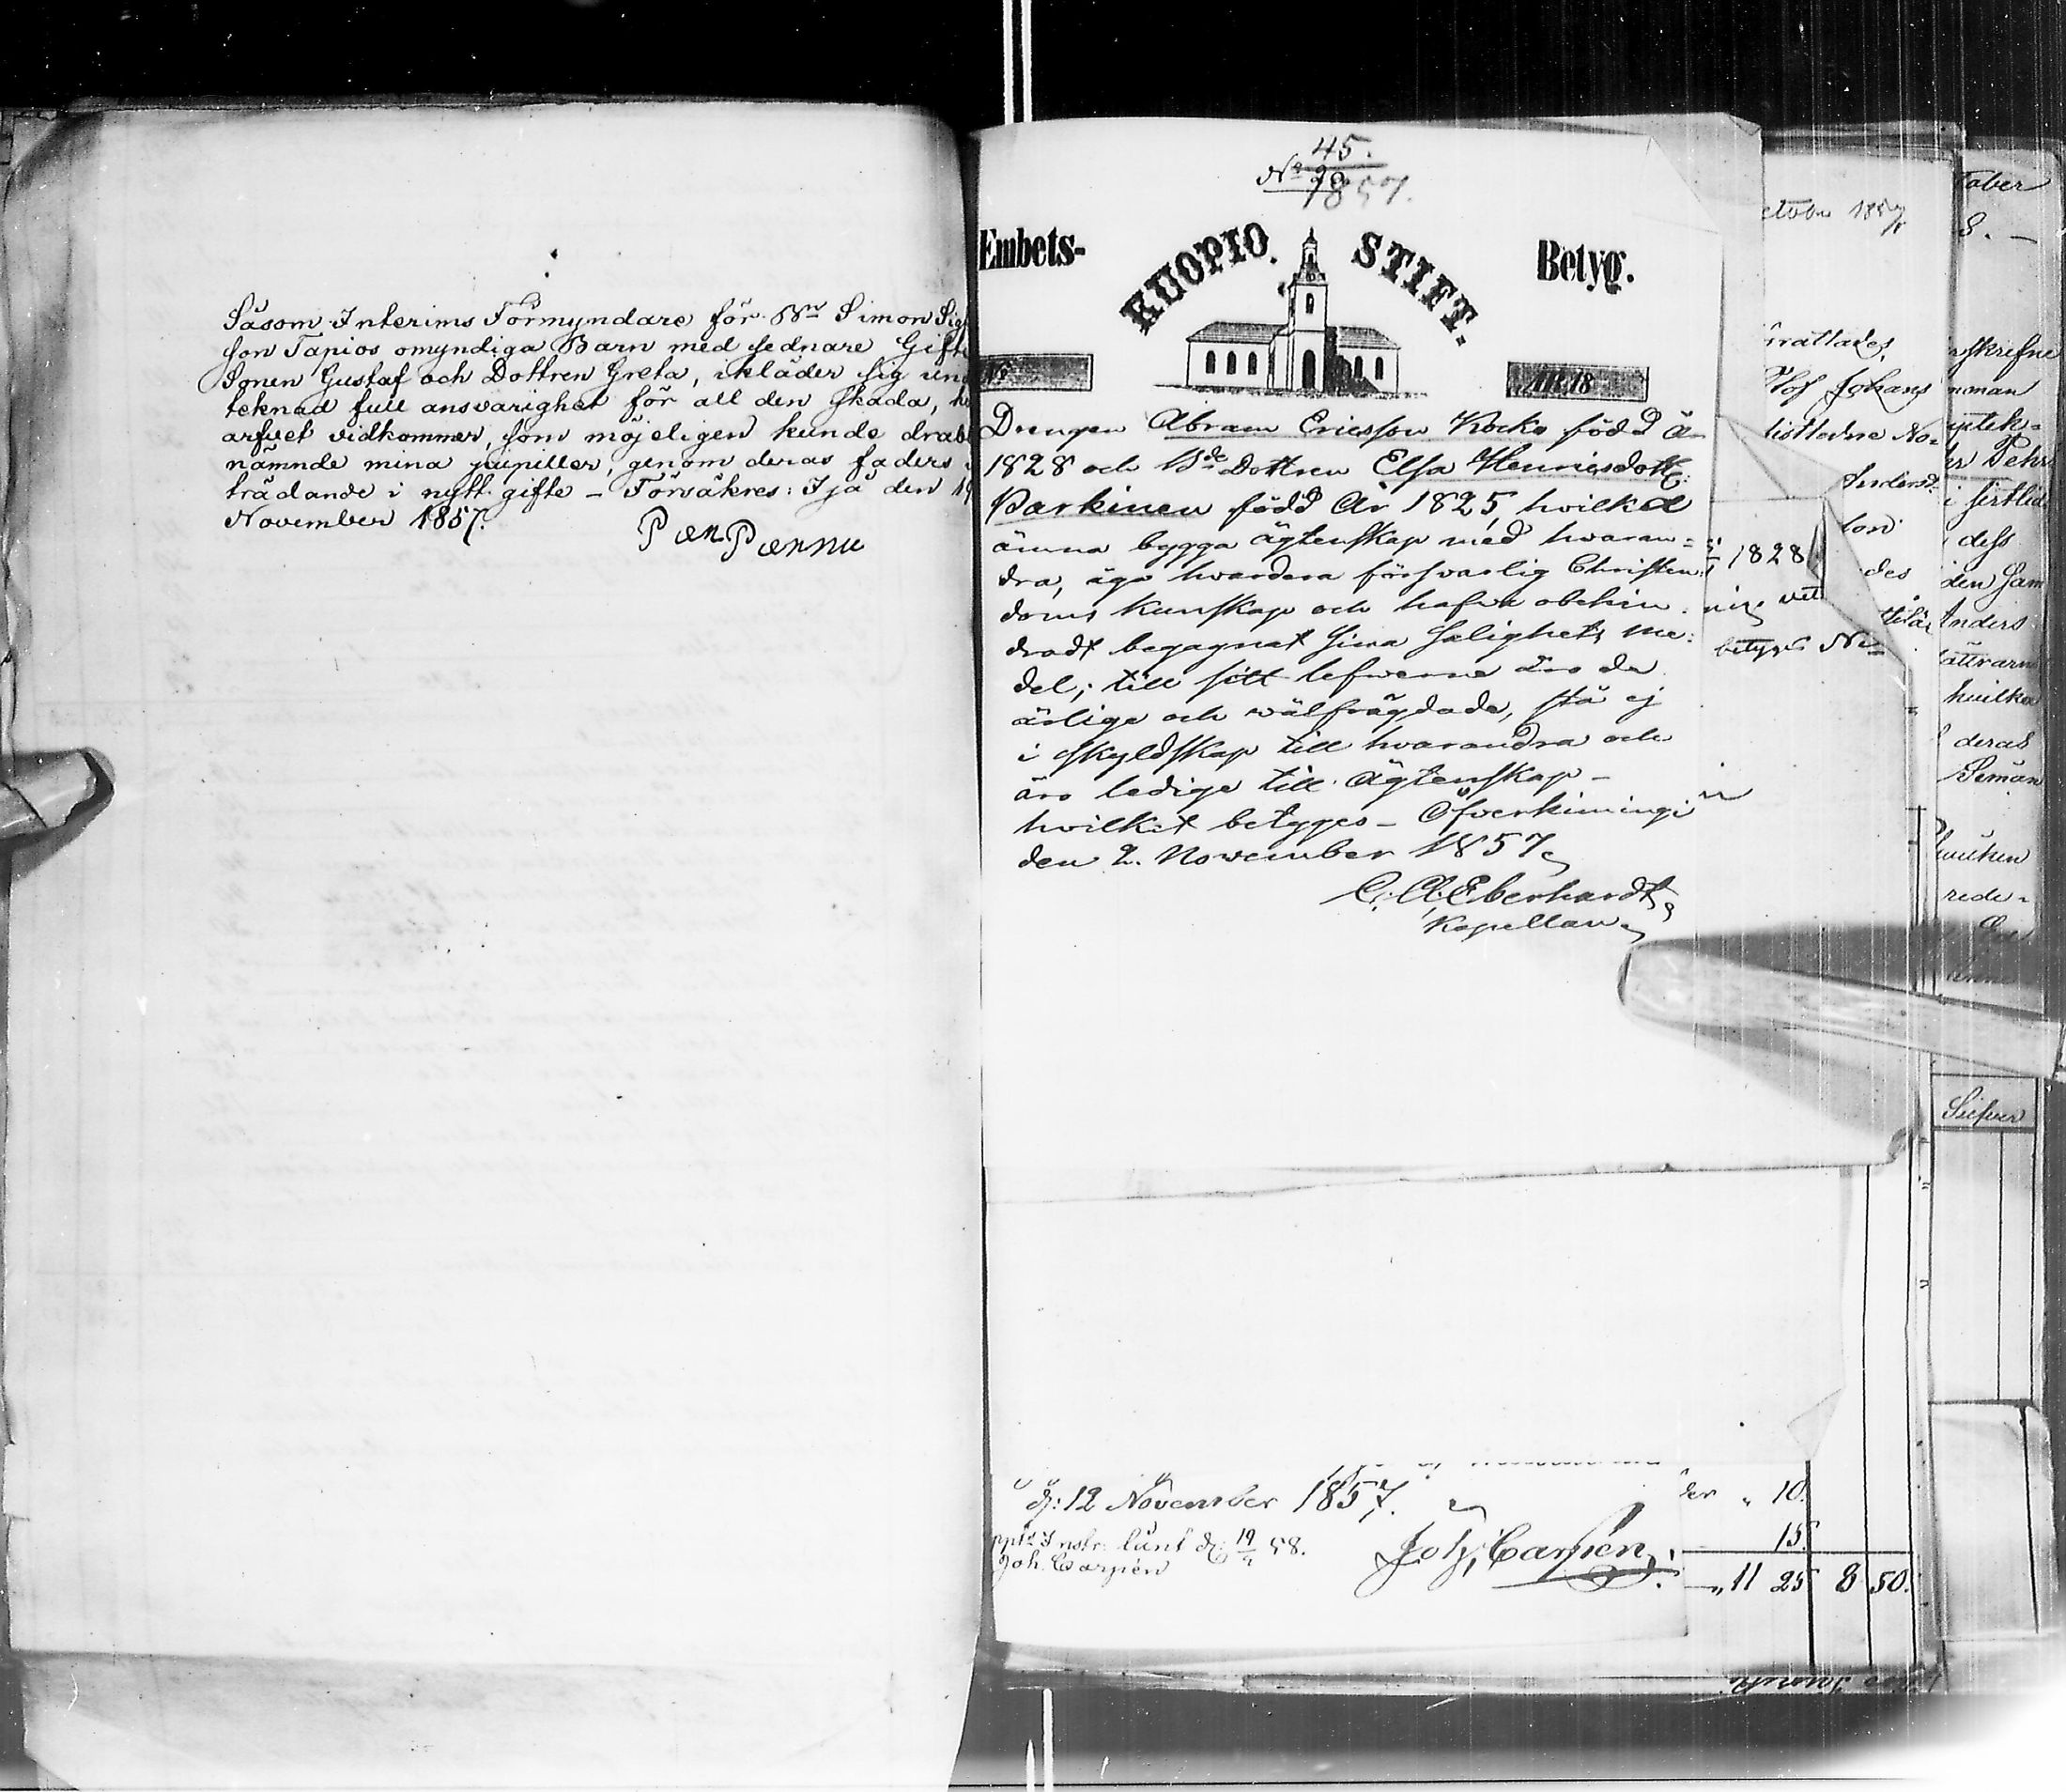 Såsom Interims Förmyndare för Bn Simon Sig
son Tapios omyndiga Barn med sednare Gifte
Sonen Gustaf och Dottren Greta, ikläder sig und
teknad full ansvarighet för all den skada, h
arfvet vidkommer, som möjeligen kunde drab
nämnde mina pupiller, genom deras faders
trädande i nytt gifte – Försäkres: Ijå den 19
November 1857.
Per Pennu
45.
No 29
1857.
Embets-
KUOPIO STIFT.
Betyg.
No
ÅR 18
Drengen Abram Ericsson Kocko född År
1828 och Bde Dottren Elsa Henricsdott:
Parkinen född År 1825, hvilka
ämna bygga ägtenskap med hwaran=
dra, äga hvardera försvarlig Christen=
doms kunskap och hafva obehin:
dradt begagnat sina salighets me:
del; till sitt lefwerne äro de
ärlige och wälfrägdade, stå ej
i skyldskap till hvarandra och
äro ledige till Ägtenskap –
hvilket betygges – Öfverkiimingi
den 2. November 1857
C. A. Eberhardt
Kapellan
d: 12 November 1857.
Joh. Carpén
Instr. lünt d: 19/4 58.
Joh. Carpén
der " 10.
15.
" 11 25 8 50.
ctober 1857
rrattades,
Olof Johans
No=
Anders
1828
betyga
tober
8. –
rskrefne
mman
Pehr
dess
den sam
Anders
hvilka
deras
Siman
rede=
Silfver